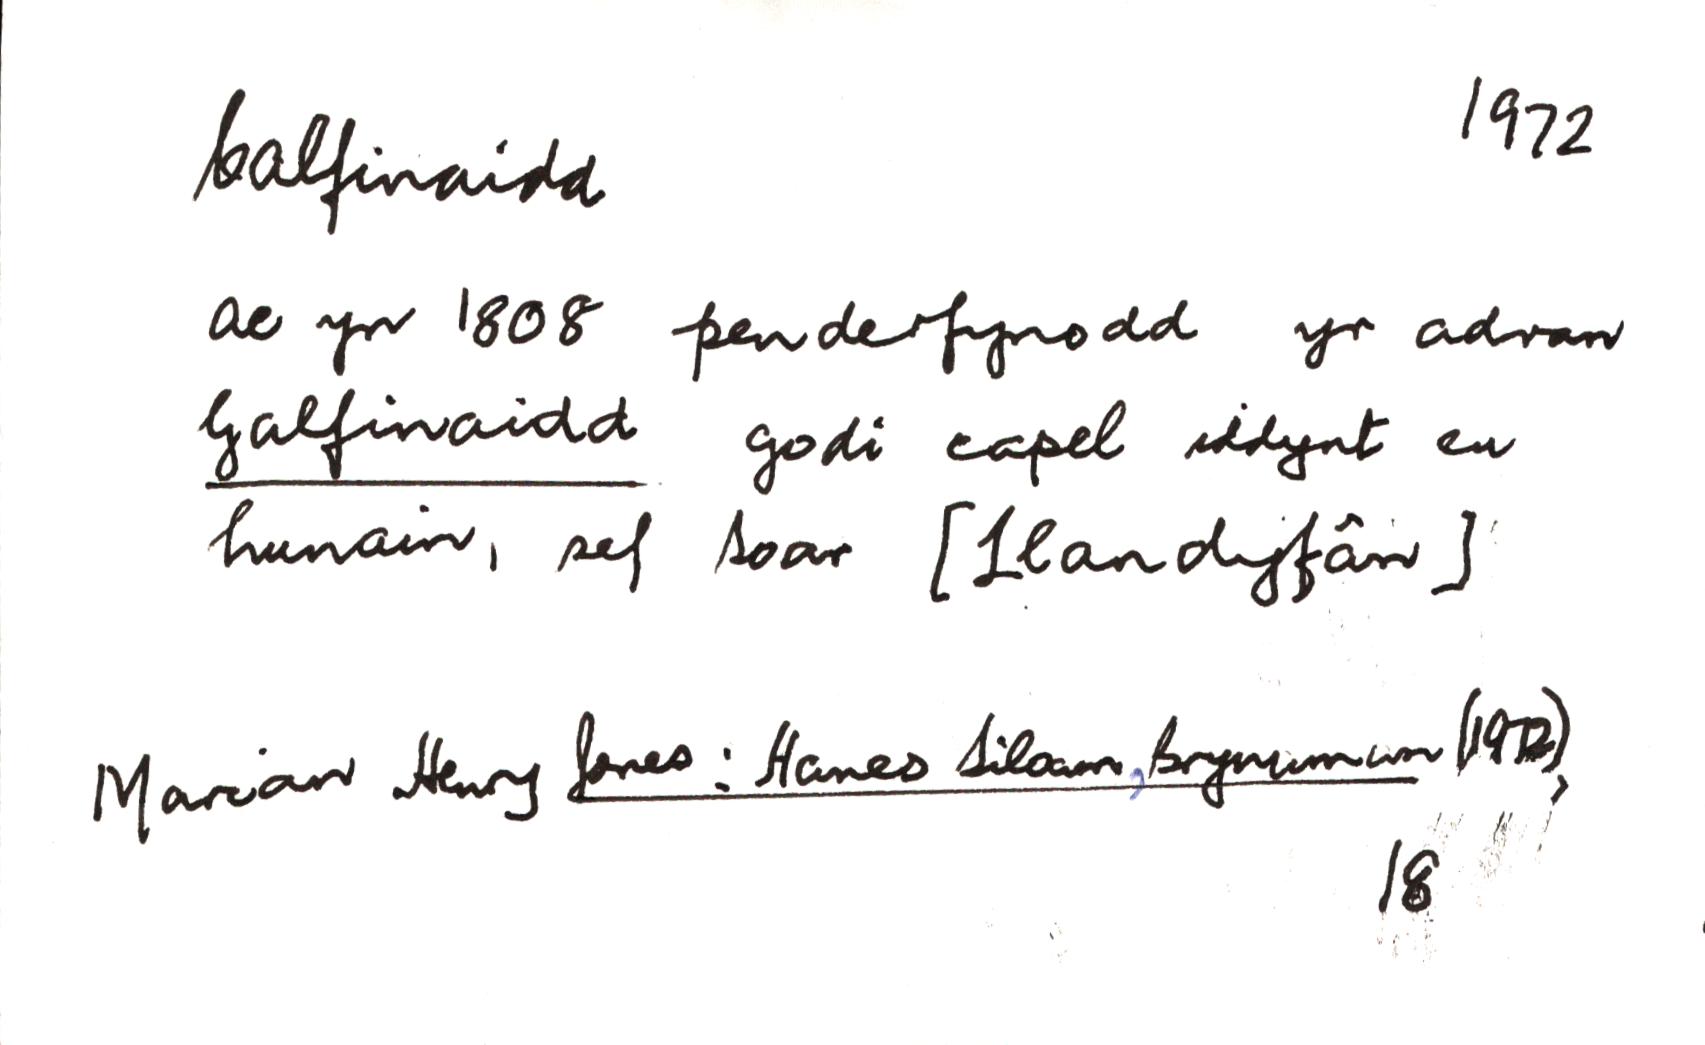 Calfinaidd
1972
ac yn 1808 penderfynodd yr adran
Galfinaidd godi capel iddynt eu
hunain, sef Soar [Llandyfân]
Marian Henry Jones: Hanes Siloam, Brynaman (1972),
18